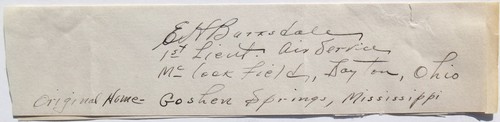 E H Barksdale
1st Lieut. Air Service
Mc Cook Field, Dayton, Ohio
Original Home- Goshen Springs, Mississippi